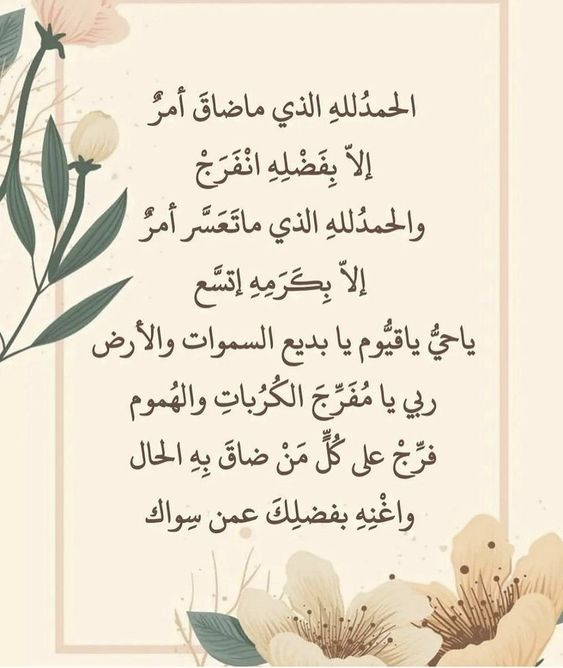 الحمدُللهِ الذي ماضاقَ أمرٌ
إلاّ بِفَضْلِهِ انْفَرَجْ
والحمدُللهِ الذي ماتَعَسَّر أمرٌ
إلاّ بِكَرَمِهِ إتسَّع
ياحيُّ ياقيُّوم يا بديع السموات والأرض
ربي يا مُفَرِّجَ الكُرُباتِ والهُموم
فرِّجْ على كُلِّ مَنْ ضاقَ بِهِ الحال
واغْنِهِ بفضلِكَ عمن سِواك